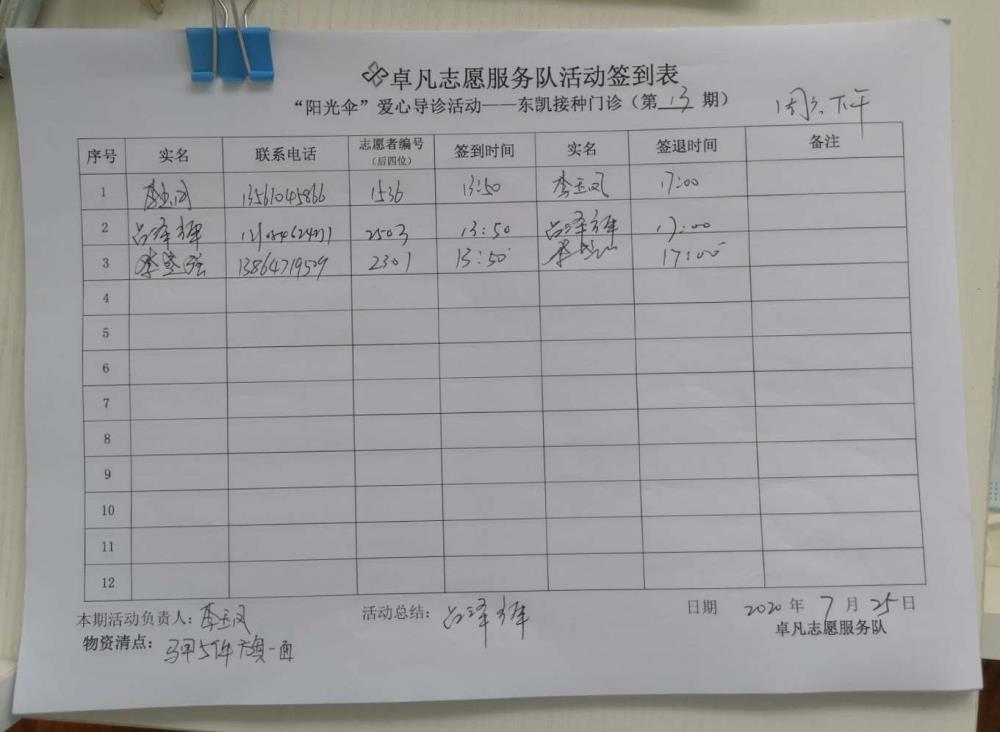 卓凡志愿服务队活动签到表
“阳光伞”爱心导诊活动——东凯接种门诊（第13期） 周六下午
序号 实名 联系电话 志愿者编号（后四位） 签到时间 实名 签退时间 备注
1 李玉凤 13561045866 1536 13:50 李玉凤 17:00
2 占泽 2503 13:50 占泽 17:00
3 李 13864719509 2301 13:50 李 17:00
4
5
6
7
8
9
10
11
12
本期活动负责人：李玉凤 活动总结：占泽 日期 2020年7月25日
物资清点：马甲5件 旗一面 卓凡志愿服务队